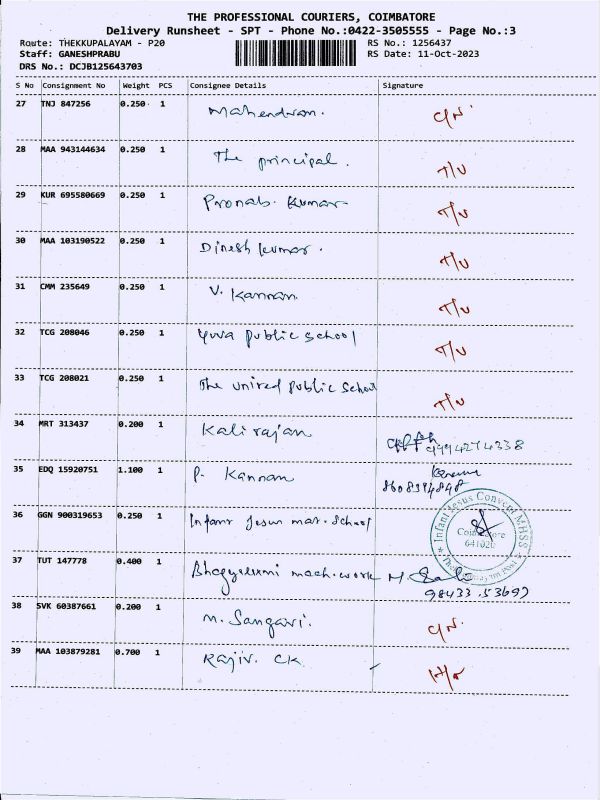 THE PROFESSIONAL COURIERS, COIMBATORE
Delivery Runsheet - SPT - Phone No.:0422-3505555 - Page No.:3
Route: THEKKUPALAYAM - P20 RS No.: 1256437
Staff: GANESHPRABU RS Date: 11-Oct-2023
DRS No.: DCJB125643703
S No Consignment No Weight PCS Consignee Details Signature
27 TNJ 847256 0.250 1 Mahendran. C/N
28 MAA 943144634 0.250 1 The principal. T/U
29 KUR 695580669 0.250 1 Pronab. Kumar T/U
30 MAA 103190522 0.250 1 Dinesh kumar. T/U
31 CMM 235649 0.250 1 V. Kannan T/U
32 TCG 208046 0.250 1 Yuva public school T/U
33 TCG 208021 0.250 1 The united public school T/U
34 MRT 313437 0.200 1 Kalirajan 9994274338
35 EDQ 15920751 1.100 1 P. Kannan
36 GGN 900319653 0.250 1 Infant Jesus mat. School
Infant Jesus Convent MHSS
Coimbatore
641020
37 TUT 147778 0.400 1 mach. work
98433 53697
38 SVK 60387661 0.200 1 M. Sangavi. C/N
39 MAA 103879281 0.700 1 Rajiv. CK